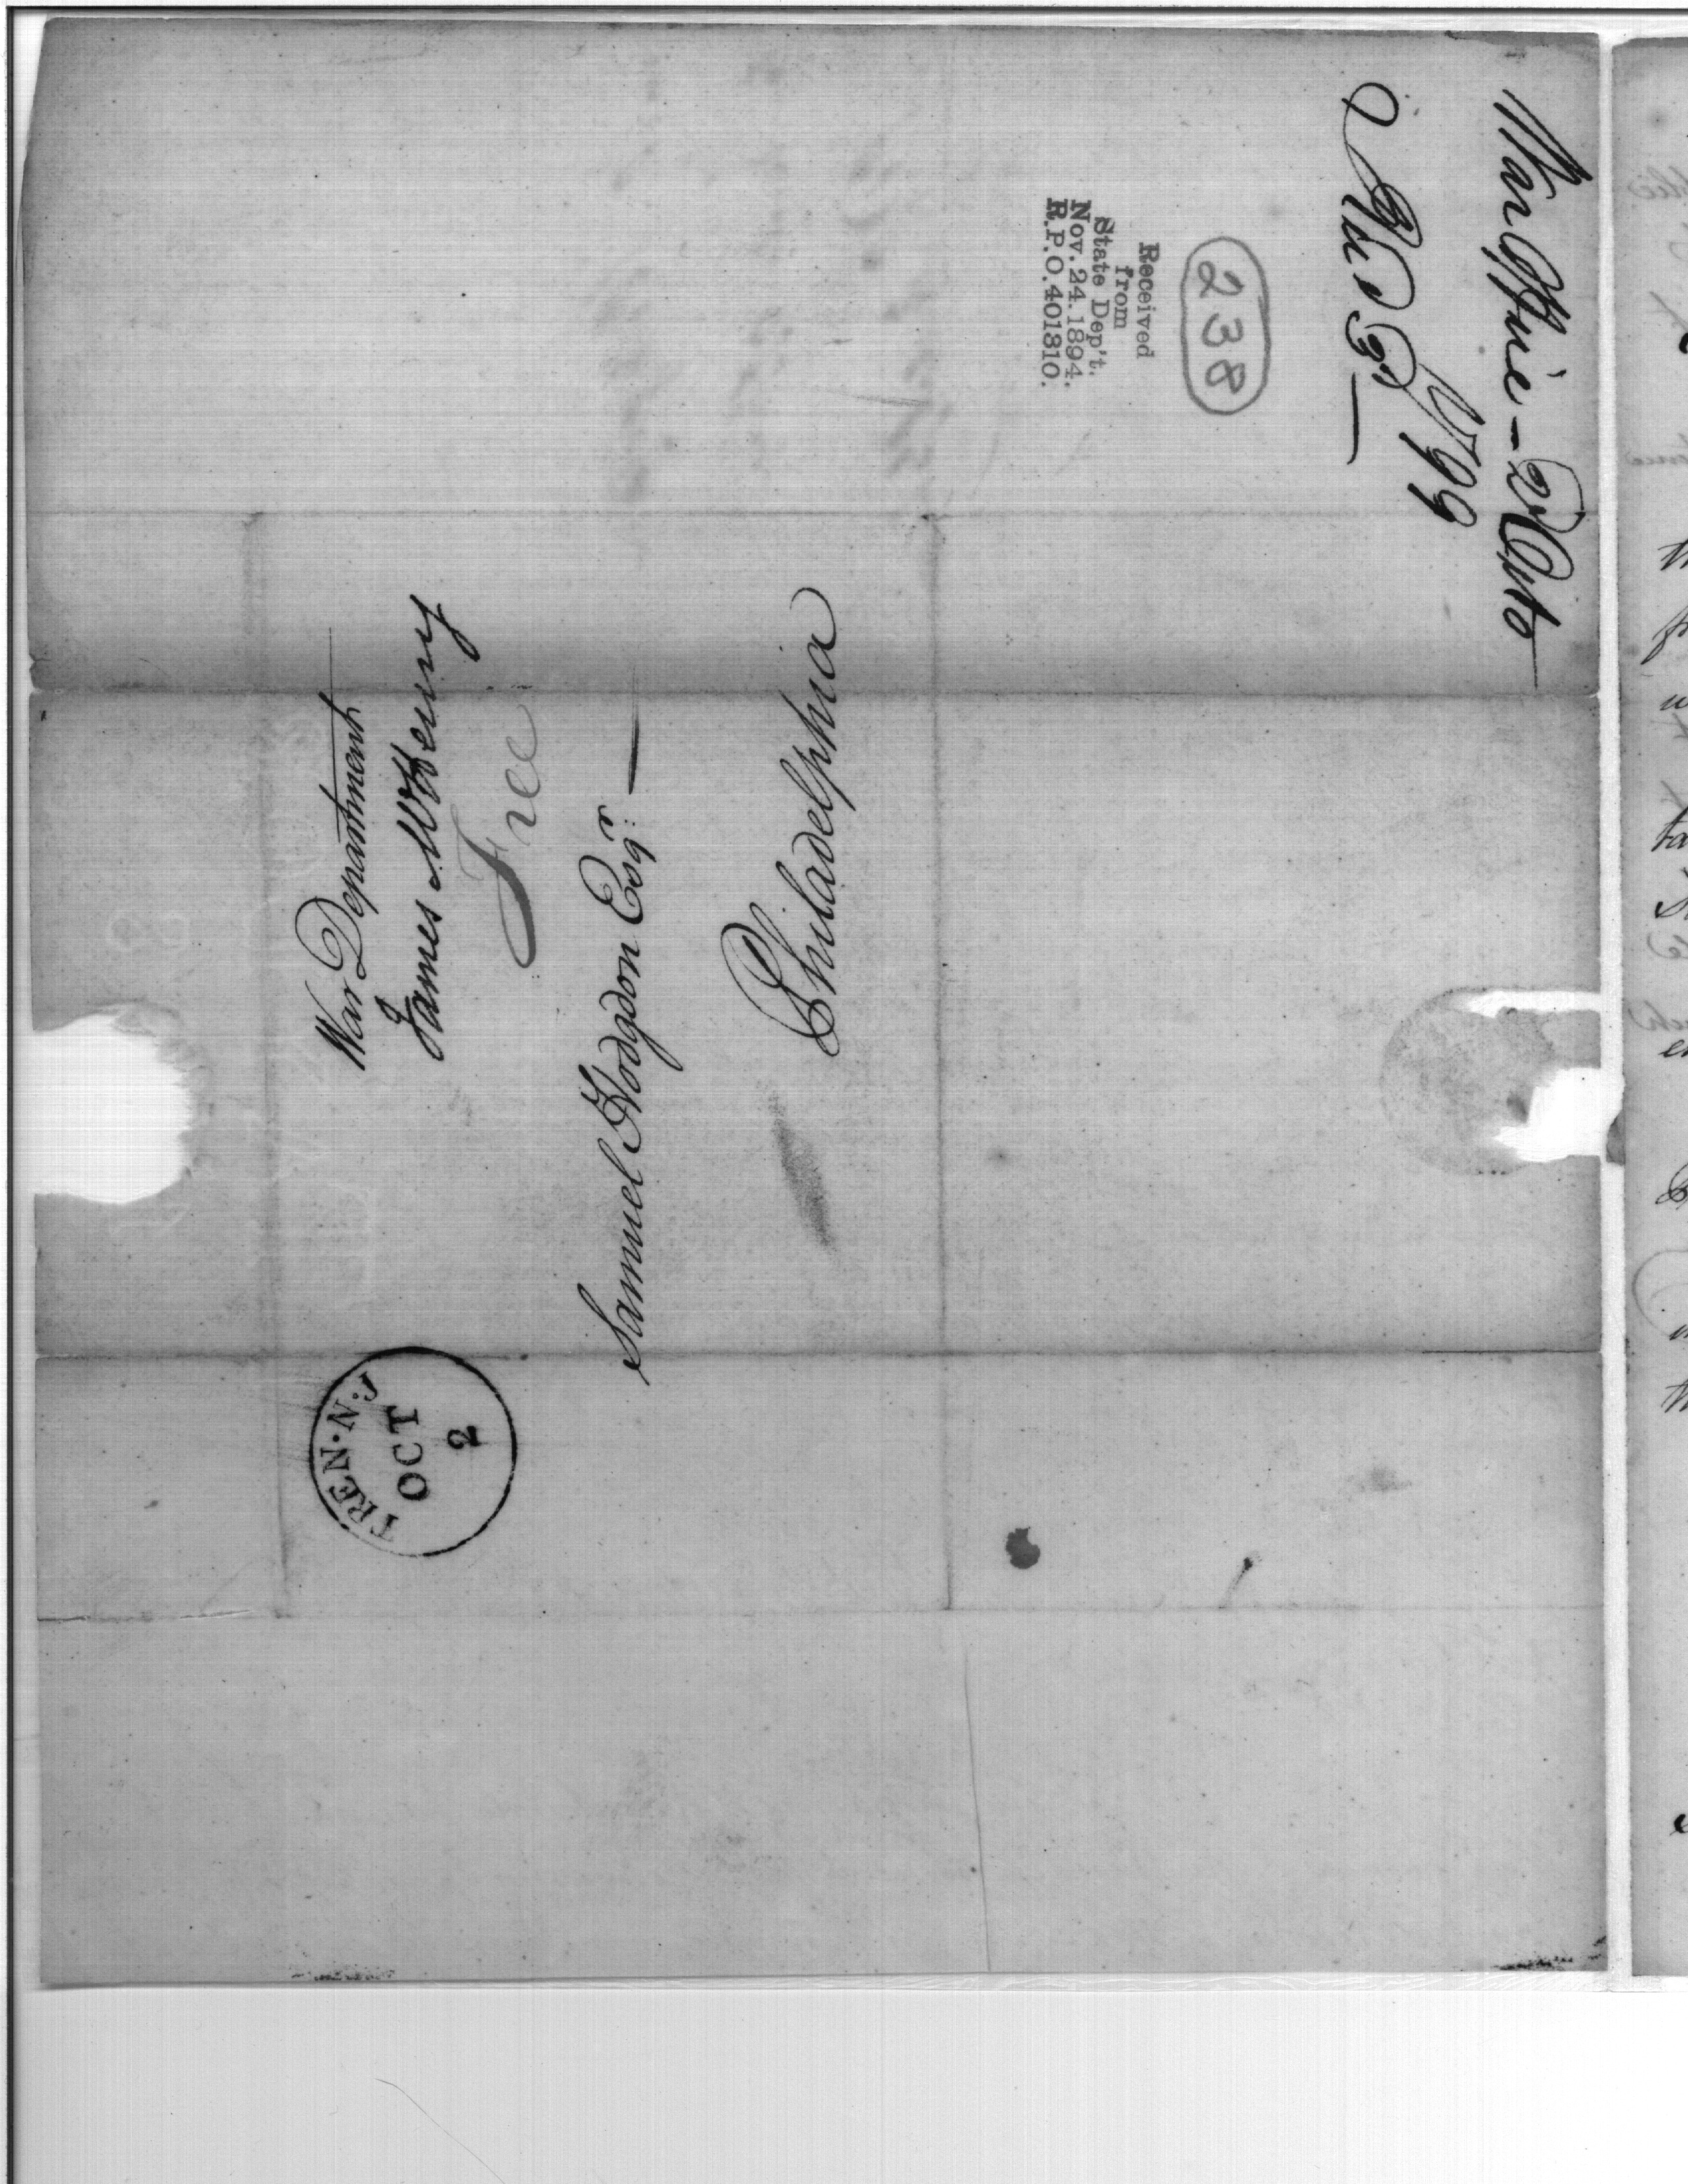 War Department
James McHenry
Free
Samuel Hodgdon Esqr:
Philadelphia
TREN·N:J
OCT
2
War Office – 2d Octo
1799
Recd 3d
238
Received
from
State Dep't.
Nov. 24. 1894.
R.P.O. 401310.